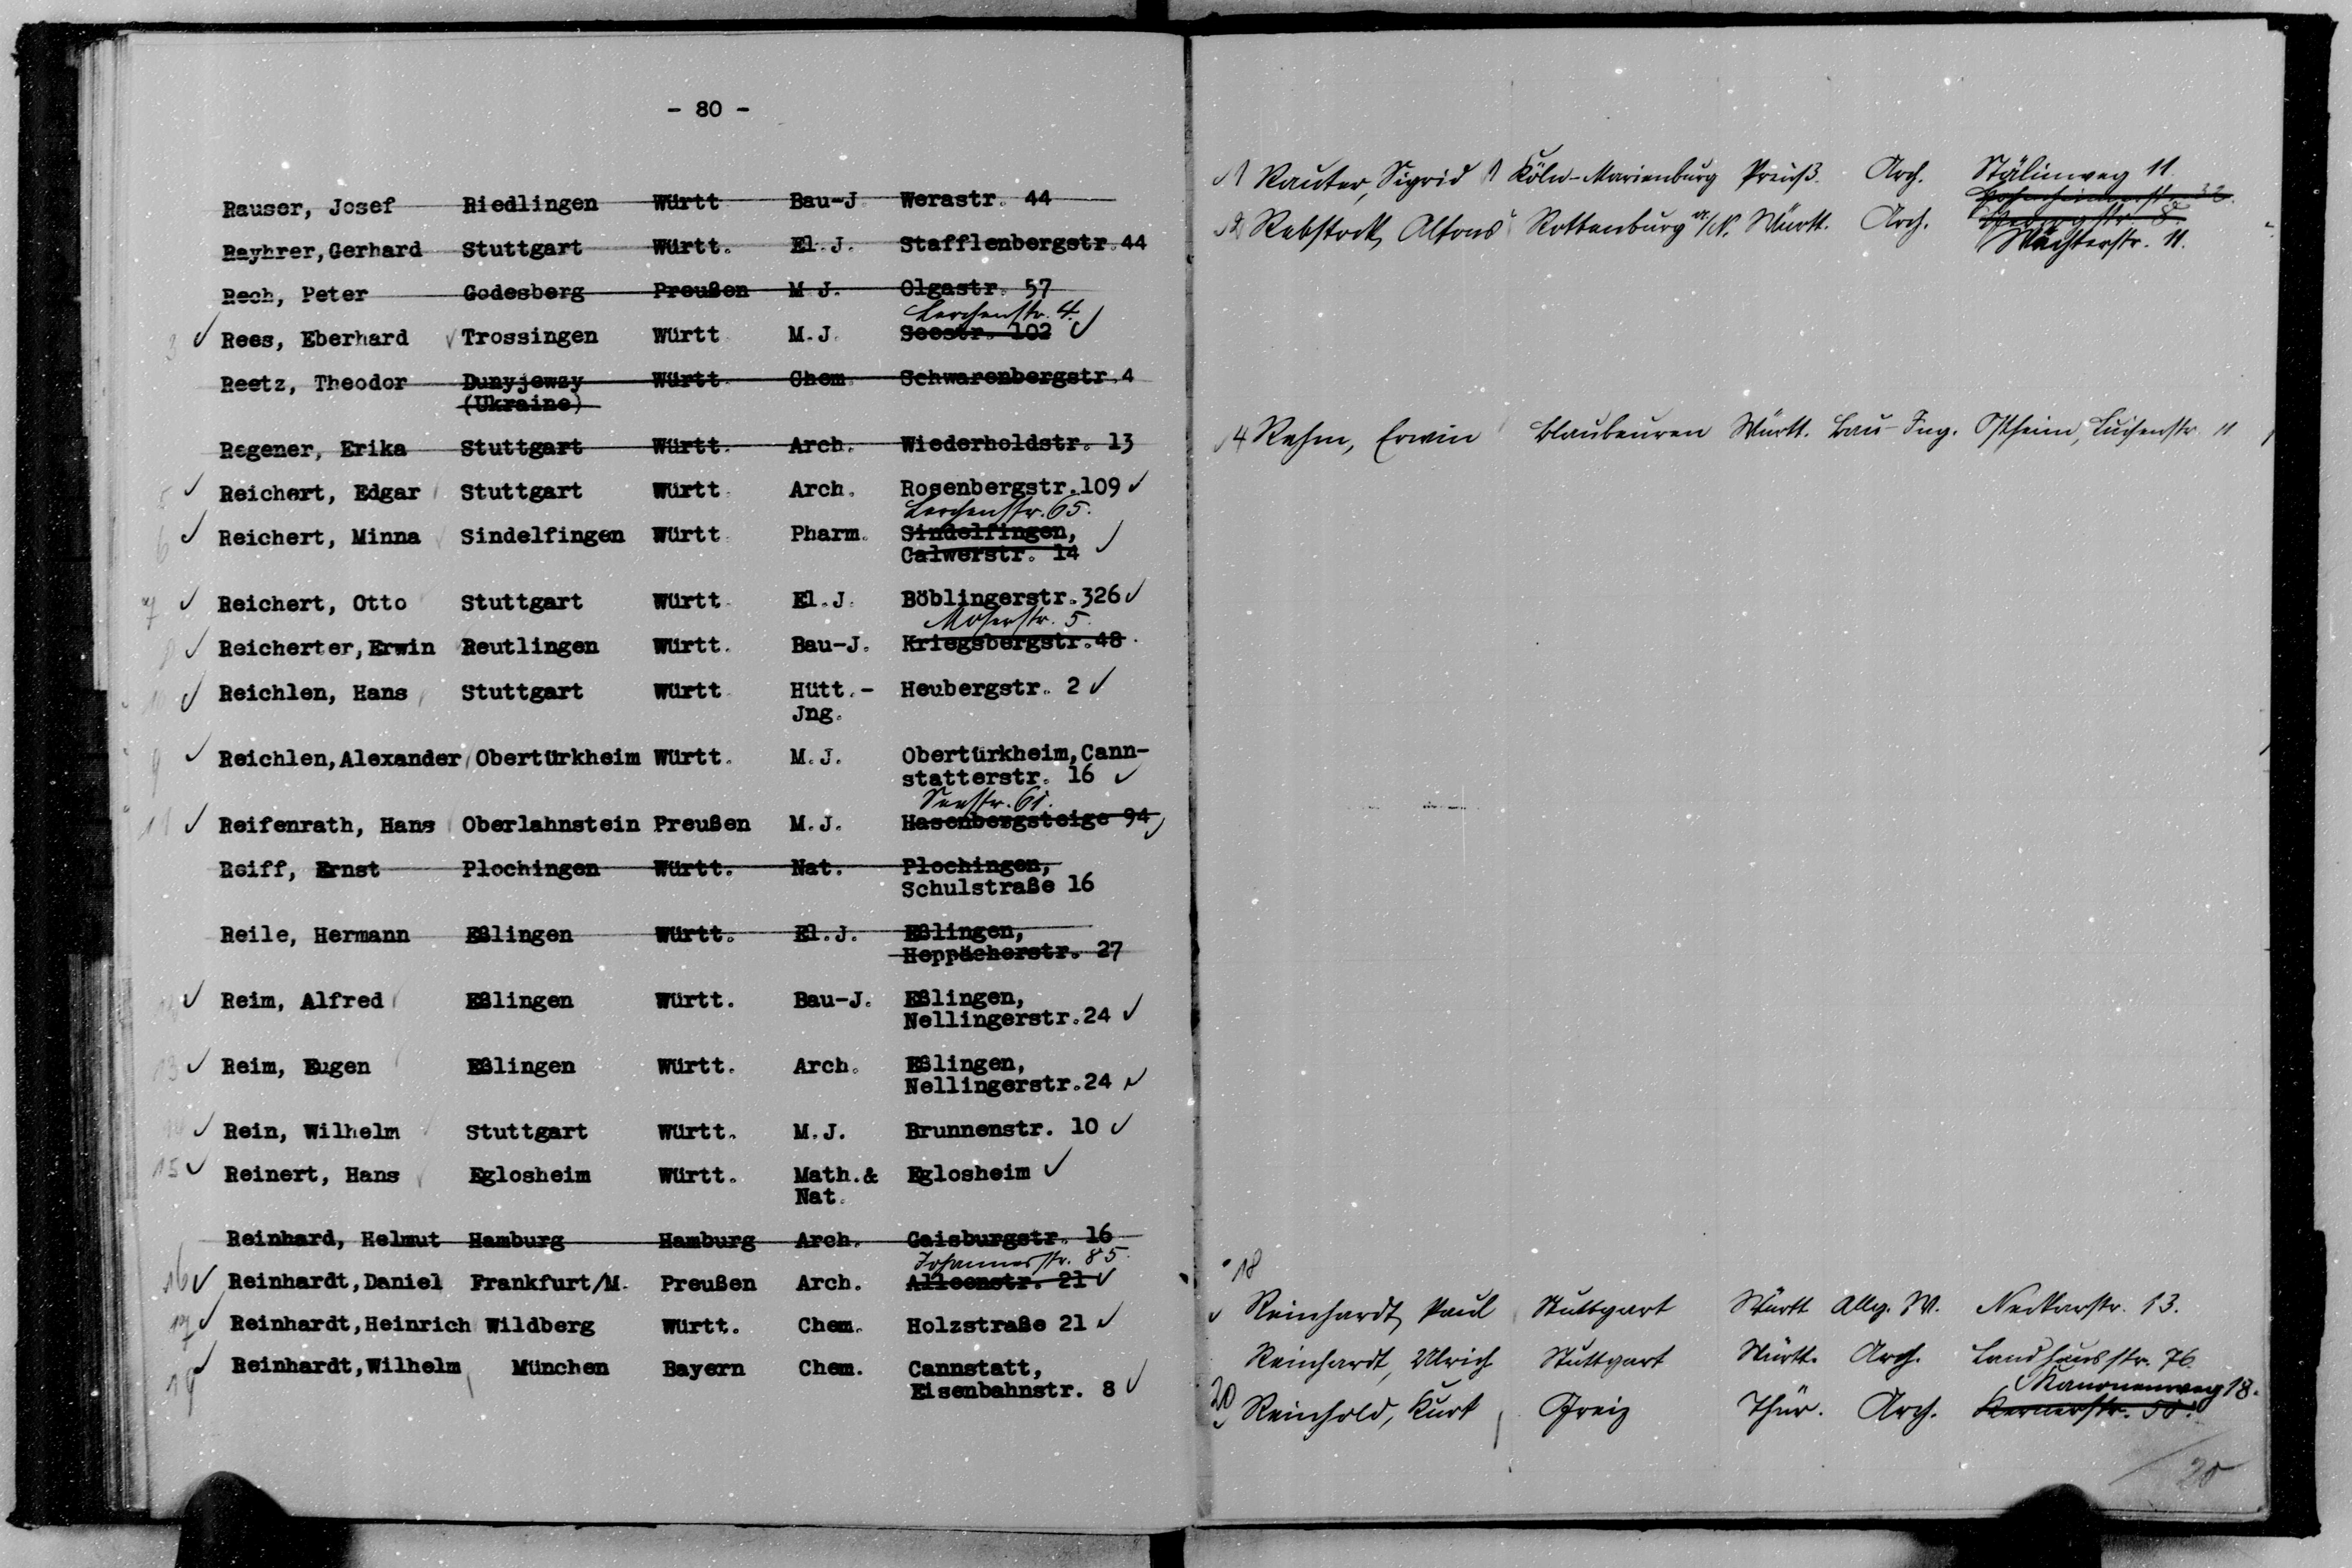 - 80 -
Rauser, Josef Riedlingen Württ Bau-J. Werastr. 44
Rayhrer, Gerhard Stuttgart Württ. El.J. Stafflenbergstr.44
Rech, Peter Godesberg Preußen M J. Olgastr. 57
Lerchenstr. 4.
3 Rees, Eberhard Trossingen Württ M.J. Seestr. 102
Reetz, Theodor Dunyjewzy Württ Chem Schwarenbergstr.4
(Ukraine)
Regener, Erika Stuttgart Württ. Arch. Wiederholdstr. 13
5 Reichert, Edgar Stuttgart Württ. Arch. Rosenbergstr.109
Lerchenstr. 65.
6 Reichert, Minna Sindelfingen Württ. Pharm. Sindelfingen,
Calwerstr. 14
7 Reichert, Otto Stuttgart Württ. El.J. Böblingerstr.326
Moserstr. 5.
8 Reicherter, Erwin Reutlingen Württ. Bau-J. Kriegsbergstr.48
10 Reichlen, Hans Stuttgart Württ Hütt.- Heubergstr. 2
Jng.
9 Reichlen, Alexander Obertürkheim Württ. M.J. Obertürkheim, Cann-
statterstr. 16
Seestr. 61.
11 Reifenrath, Hans Oberlahnstein Preußen M.J. Hasenbergsteige 94
Reiff, Ernst Plochingen Württ. Nat. Plochingen,
Schulstraße 16
Reile, Hermann Eßlingen Württ. El.J. Eßlingen,
Heppächerstr. 27
12 Reim, Alfred Eßlingen Württ. Bau-J. Eßlingen,
Nellingerstr.24
13 Reim, Eugen Eßlingen Württ. Arch. Eßlingen,
Nellingerstr.24
14 Rein, Wilhelm Stuttgart Württ. M.J. Brunnenstr. 10
15 Reinert, Hans Eglosheim Württ. Math.& Eglosheim
Nat.
Reinhard, Helmut Hamburg Hamburg Arch. Gaisburgstr. 16
Johannesstr. 85.
16 Reinhardt, Daniel Frankfurt/M. Preußen Arch. Alleenstr. 21
17 Reinhardt, Heinrich Wildberg Württ. Chem. Holzstraße 21
19 Reinhardt, Wilhelm München Bayern Chem. Cannstatt,
Eisenbahnstr. 8
1 Rauter, Sigrid Köln-Marienburg Preuß. Arch. Stälinweg 11.
Hohenheimerstr. 32.
2 Rebstock, Alfons Rottenburg a/N. Württ. Arch.
Wächterstr. 11.
4 Rehm, Erwin Blaubeuren Württ. Bau-Ing. Ostheim, Luisenstr. 11
18
Reinhardt, Paul Stuttgart Württ Allg. W. Neckarstr. 13.
Reinhardt, Ulrich Stuttgart Württ. Arch. Landhausstr. 76.
Kanonenweg 18.
20 Reinhold, Kurt Greiz Thür. Arch. Kernerstr. 50.
20